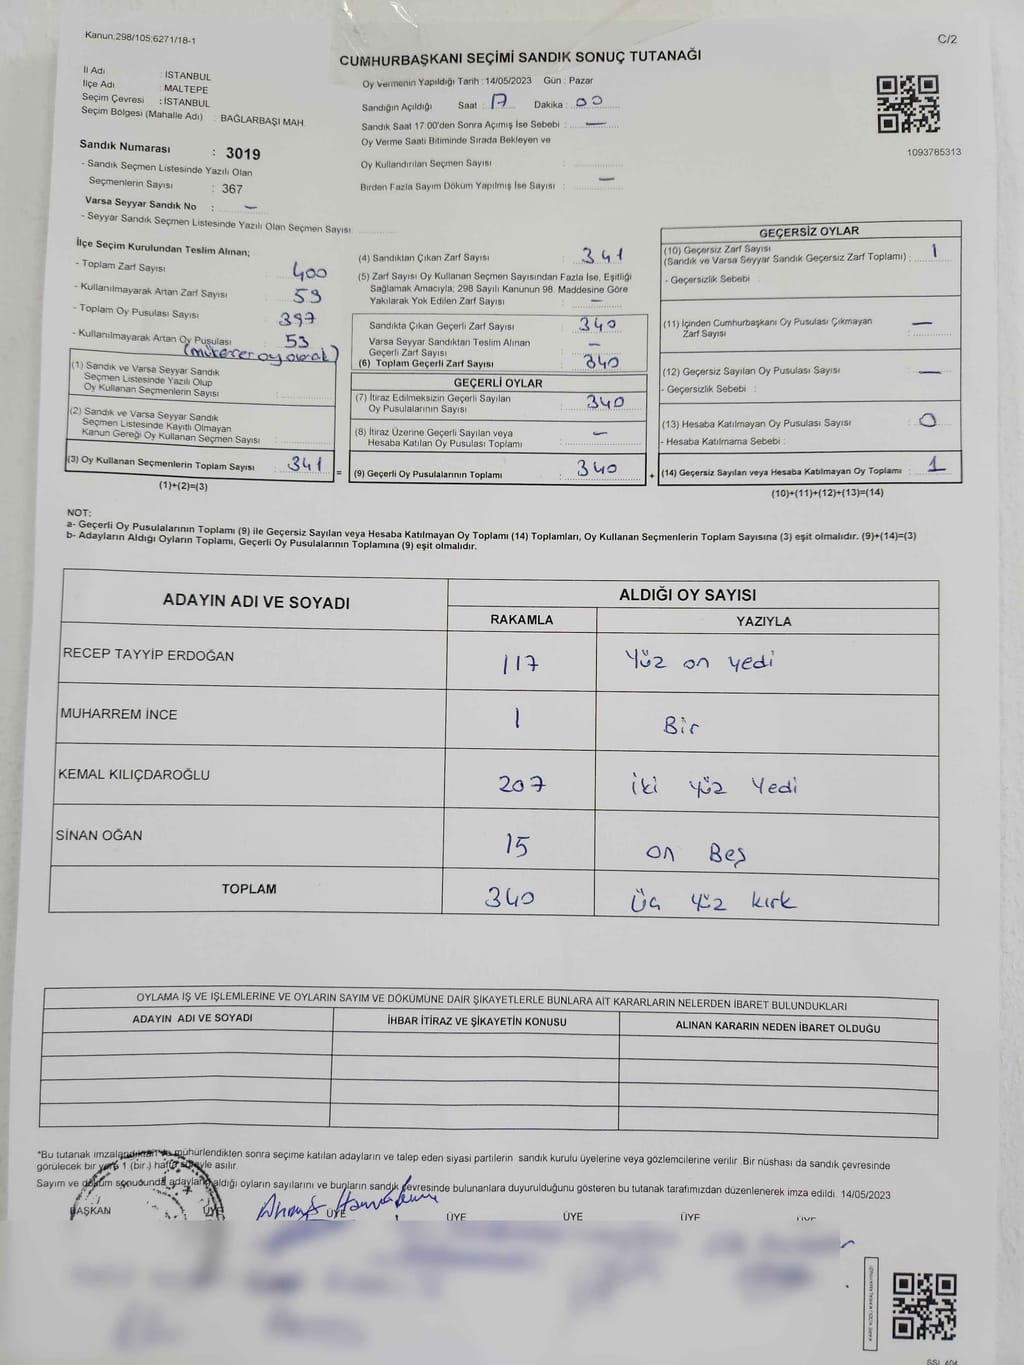 Kanun;298/105;6271/18-1
C/2
CUMHURBAŞKANI SEÇİMİ SANDIK SONUÇ TUTANAĞI
İl Adı : İSTANBUL
İlçe Adı : MALTEPE
Seçim Çevresi : İSTANBUL
Seçim Bölgesi (Mahalle Adı) : BAĞLARBAŞI MAH.
Oy Vermenin Yapıldığı Tarih : 14/05/2023 Gün : Pazar
Sandığın Açıldığı Saat : 17 Dakika : 00
Sandık Saat 17:00'den Sonra Açımış İse Sebebi : —
Oy Verme Saati Bitiminde Sırada Bekleyen ve
Oy Kullandırılan Seçmen Sayısı :
Birden Fazla Sayım Döküm Yapılmış İse Sayısı : —
1093785313
Sandık Numarası : 3019
- Sandık Seçmen Listesinde Yazılı Olan
Seçmenlerin Sayısı : 367
Varsa Seyyar Sandık No : —
- Seyyar Sandık Seçmen Listesinde Yazılı Olan Seçmen Sayısı:
İlçe Seçim Kurulundan Teslim Alınan;
- Toplam Zarf Sayısı : 400
- Kullanılmayarak Artan Zarf Sayısı : 59
- Toplam Oy Pusulası Sayısı : 397
- Kullanılmayarak Artan Oy Pusulası : 53
(mükerer oy olarak)
(1) Sandık ve Varsa Seyyar Sandık
Seçmen Listesinde Yazılı Olup
Oy Kullanan Seçmenlerin Sayısı :
(2) Sandık ve Varsa Seyyar Sandık
Seçmen Listesinde Kayıtlı Olmayan
Kanun Gereği Oy Kullanan Seçmen Sayısı :
(3) Oy Kullanan Seçmenlerin Toplam Sayısı : 341 =
(1)+(2)=(3)
(4) Sandıktan Çıkan Zarf Sayısı : 341
(5) Zarf Sayısı Oy Kullanan Seçmen Sayısından Fazla İse, Eşitliği
Sağlamak Amacıyla; 298 Sayılı Kanunun 98. Maddesine Göre
Yakılarak Yok Edilen Zarf Sayısı : —
Sandıkta Çıkan Geçerli Zarf Sayısı : 340
Varsa Seyyar Sandıktan Teslim Alınan
Geçerli Zarf Sayısı : —
(6) Toplam Geçerli Zarf Sayısı : 340
GEÇERLİ OYLAR
(7) İtiraz Edilmeksizin Geçerli Sayılan
Oy Pusulalarının Sayısı : 340
(8) İtiraz Üzerine Geçerli Sayılan veya
Hesaba Katılan Oy Pusulası Toplamı : —
(9) Geçerli Oy Pusulalarının Toplamı : 340 +
GEÇERSİZ OYLAR
(10) Geçersiz Zarf Sayısı
(Sandık ve Varsa Seyyar Sandık Geçersiz Zarf Toplamı) : 1
- Geçersizlik Sebebi :
(11) İçinden Cumhurbaşkanı Oy Pusulası Çıkmayan
Zarf Sayısı : —
(12) Geçersiz Sayılan Oy Pusulası Sayısı : —
- Geçersizlik Sebebi :
(13) Hesaba Katılmayan Oy Pusulası Sayısı : 0
- Hesaba Katılmama Sebebi :
(14) Geçersiz Sayılan veya Hesaba Katılmayan Oy Toplamı : 1
(10)+(11)+(12)+(13)=(14)
NOT:
a- Geçerli Oy Pusulalarının Toplamı (9) ile Geçersiz Sayılan veya Hesaba Katılmayan Oy Toplamı (14) Toplamları, Oy Kullanan Seçmenlerin Toplam Sayısına (3) eşit olmalıdır. (9)+(14)=(3)
b- Adayların Aldığı Oyların Toplamı, Geçerli Oy Pusulalarının Toplamına (9) eşit olmalıdır.
ADAYIN ADI VE SOYADI
ALDIĞI OY SAYISI
RAKAMLA YAZIYLA
RECEP TAYYİP ERDOĞAN 117 Yüz on yedi
MUHARREM İNCE 1 Bir
KEMAL KILIÇDAROĞLU 207 iki yüz Yedi
SİNAN OĞAN 15 on Beş
TOPLAM 340 Üç yüz kırk
OYLAMA İŞ VE İŞLEMLERİNE VE OYLARIN SAYIM VE DÖKÜMÜNE DAİR ŞİKAYETLERLE BUNLARA AİT KARARLARIN NELERDEN İBARET BULUNDUKLARI
ADAYIN ADI VE SOYADI İHBAR İTİRAZ VE ŞİKAYETİN KONUSU ALINAN KARARIN NEDEN İBARET OLDUĞU
*Bu tutanak imzalandıktan ve mühürlendikten sonra seçime katılan adayların ve talep eden siyasi partilerin sandık kurulu üyelerine veya gözlemcilerine verilir. Bir nüshası da sandık çevresinde
görülecek bir yere 1 (bir.) hafta süreyle asılır.
Sayım ve döküm sonucunda adayların aldığı oyların sayılarını ve bunların sandık çevresinde bulunanlara duyurulduğunu gösteren bu tutanak tarafımızdan düzenlenerek imza edildi. 14/05/2023
BAŞKAN ÜYE ÜYE ÜYE ÜYE ÜYE ÜYE